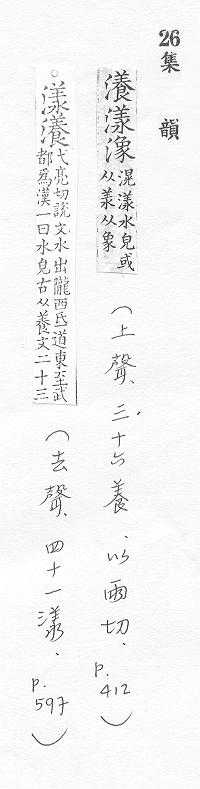 26 集韻
瀁漾潒 混漾水皃或
从羕从象
（上聲、三十六養、以兩切、p.412）
漾瀁 弋亮切說文水出隴西氐道東至武
都爲漢一曰水皃古从養文二十三
（去聲、四十一漾、p.597）